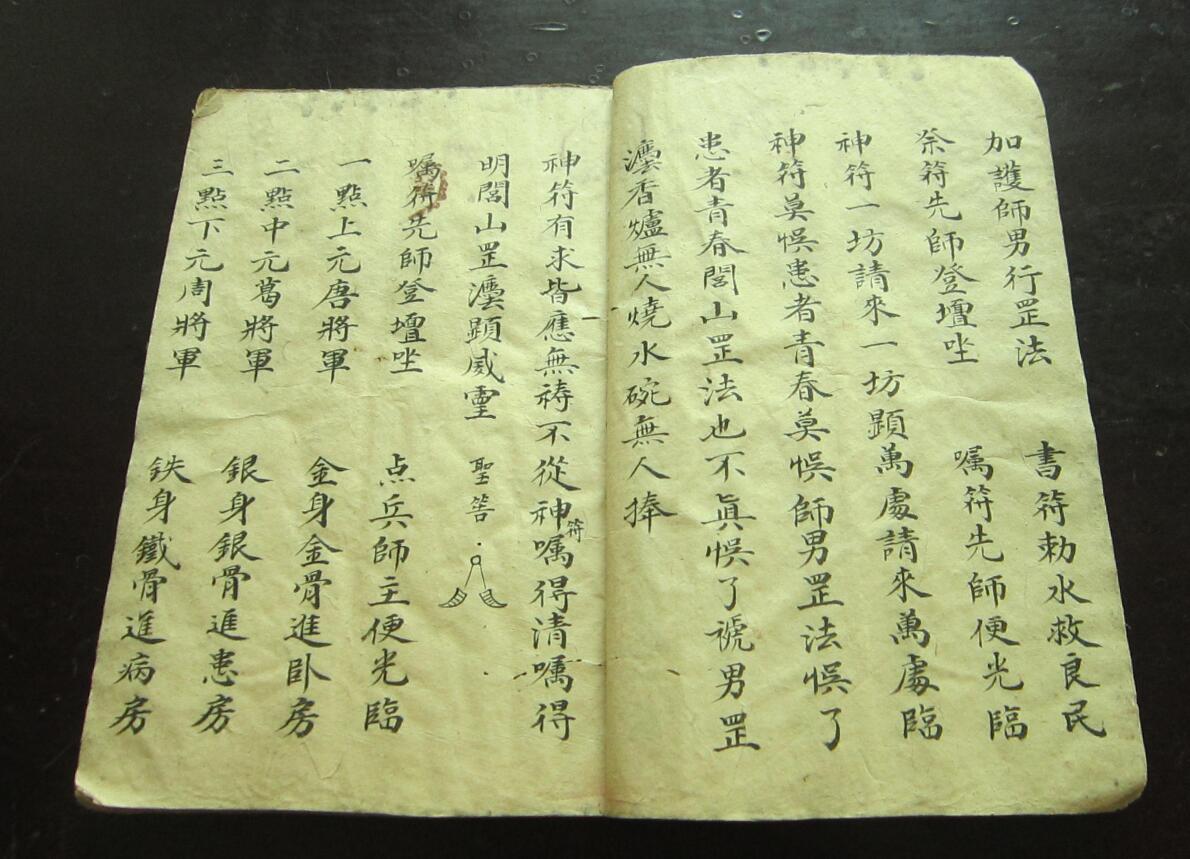 加護師男行罡法　書符勅水救良民
祭符先師登壇坐　嘱符先師便光臨
神符一坊請來一坊顕萬處請來萬處臨
神符莫悞患者青春莫悞師男罡法悞了
患者青春閭山罡法也不眞悞了號男罡
灋香爐無人燒水碗無人捧
神符有求皆應無禱不從神符嘱得清嘱得
明閭山罡灋顕威灵　聖筶
嘱符先師登壇坐　点兵師主便光臨
一點上元唐將軍　金身金骨進卧房
二點中元葛將軍　銀身銀骨進患房
三點下元周將軍　鉄身鐵骨進病房